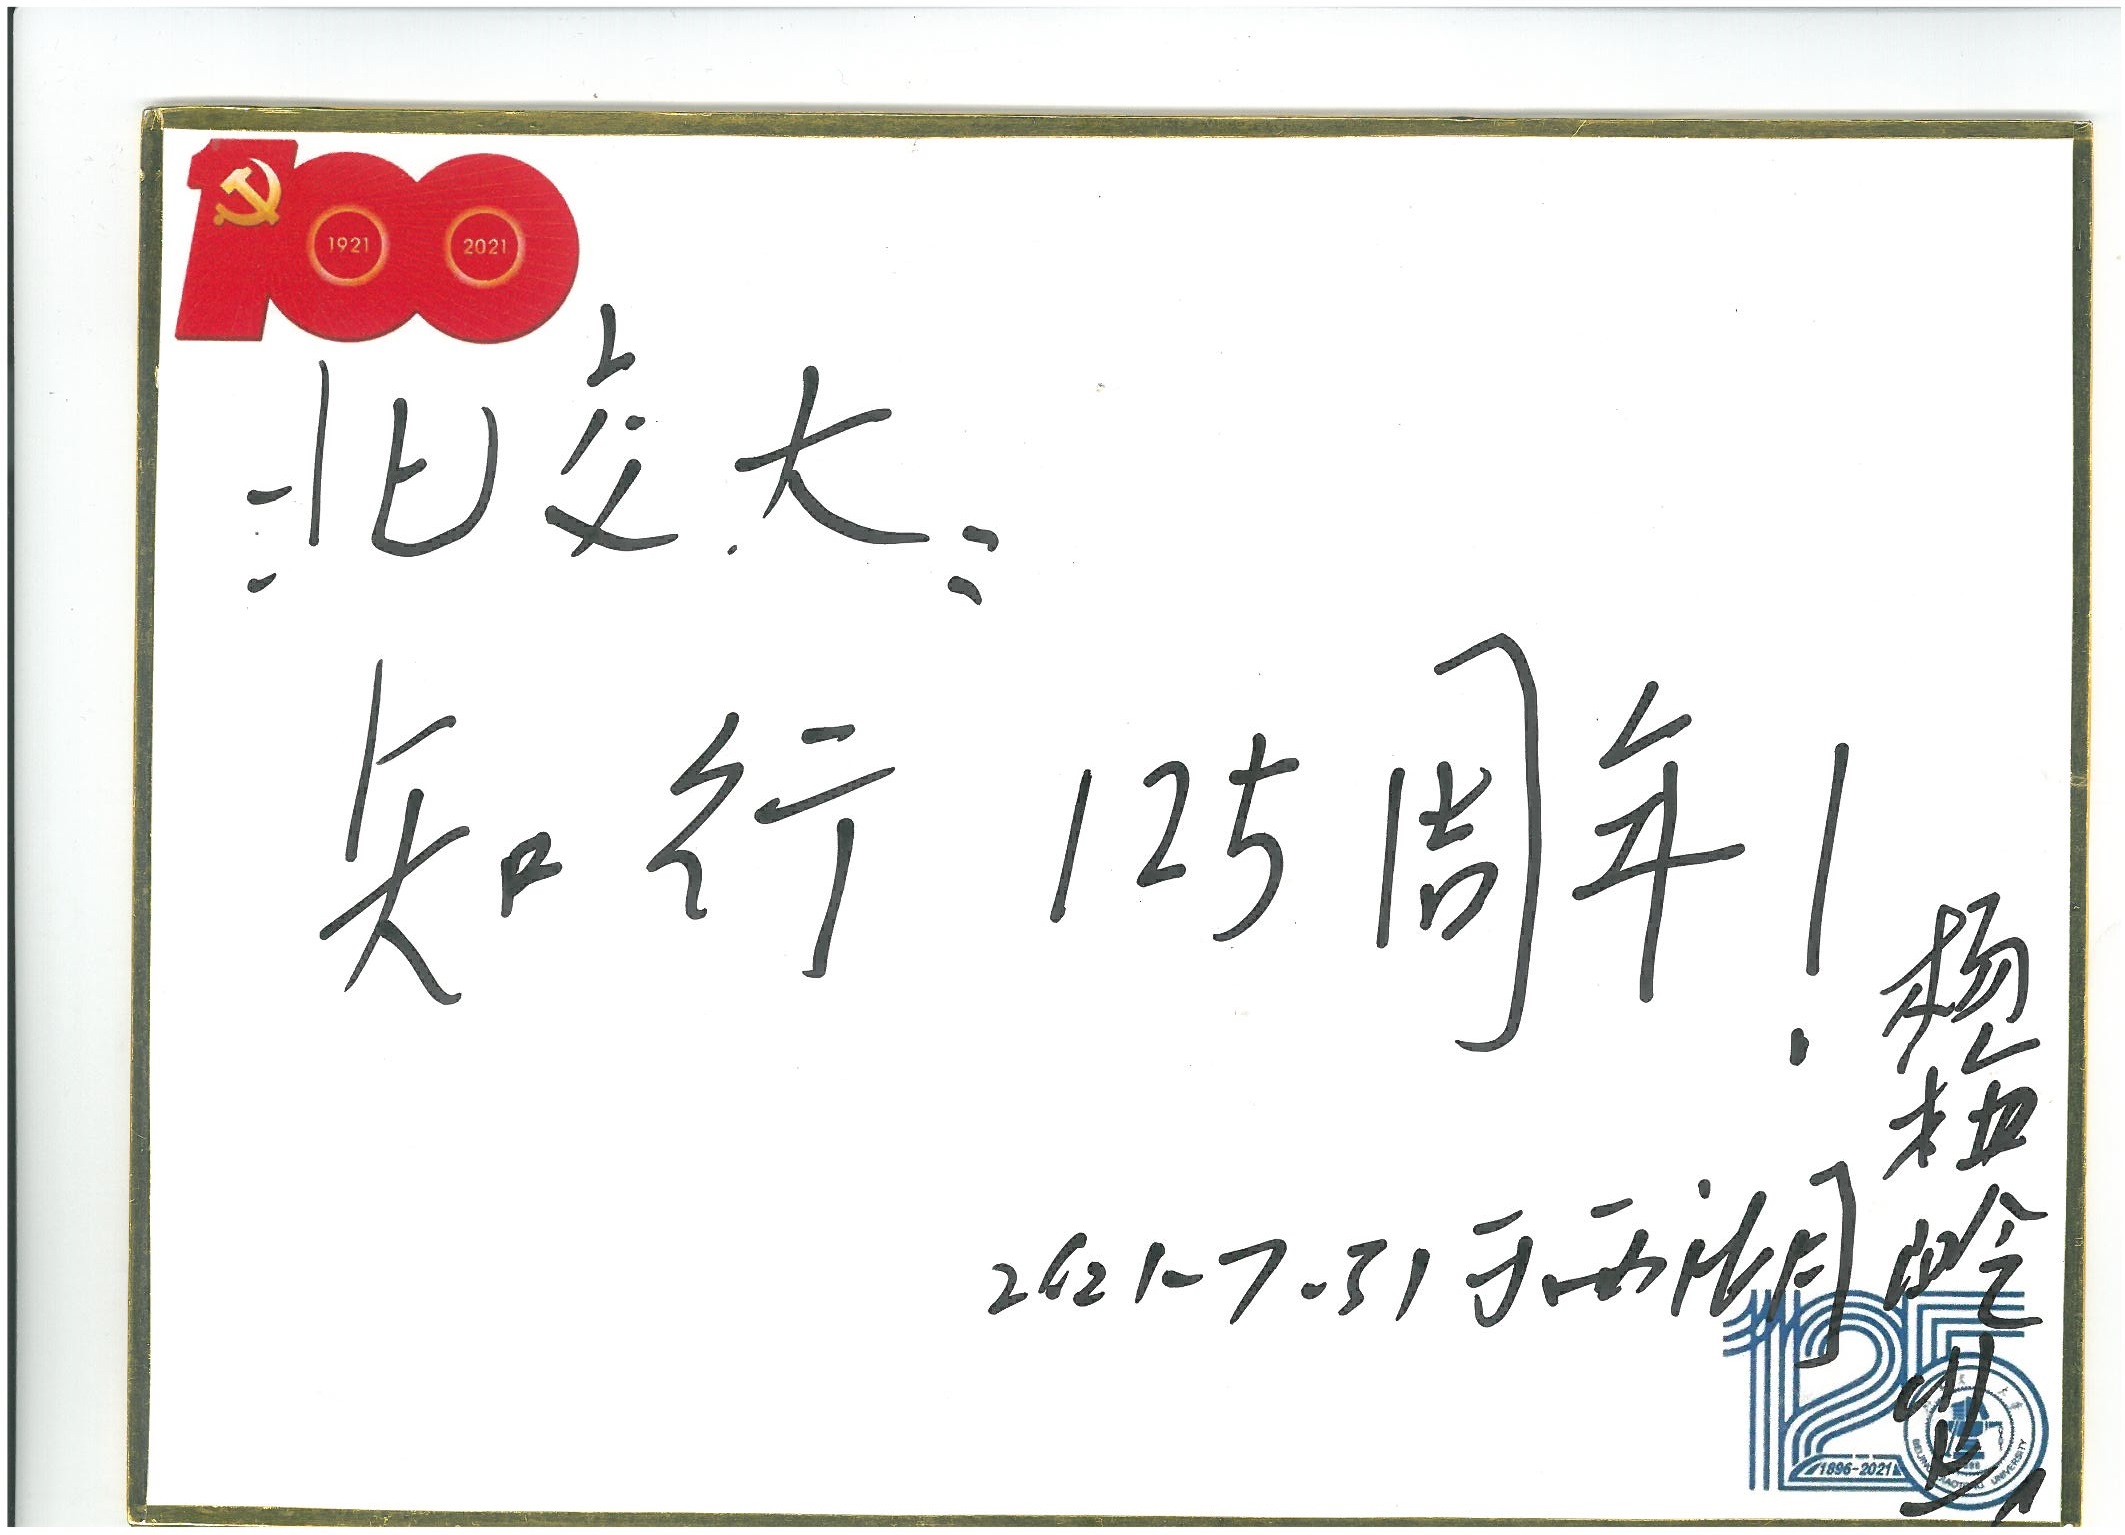 100
1921 2021
北交大：
知行125周年！
2021-7.31于西湖
杨
1896-2021
BEIJING JIAOTONG UNIVERSITY
125